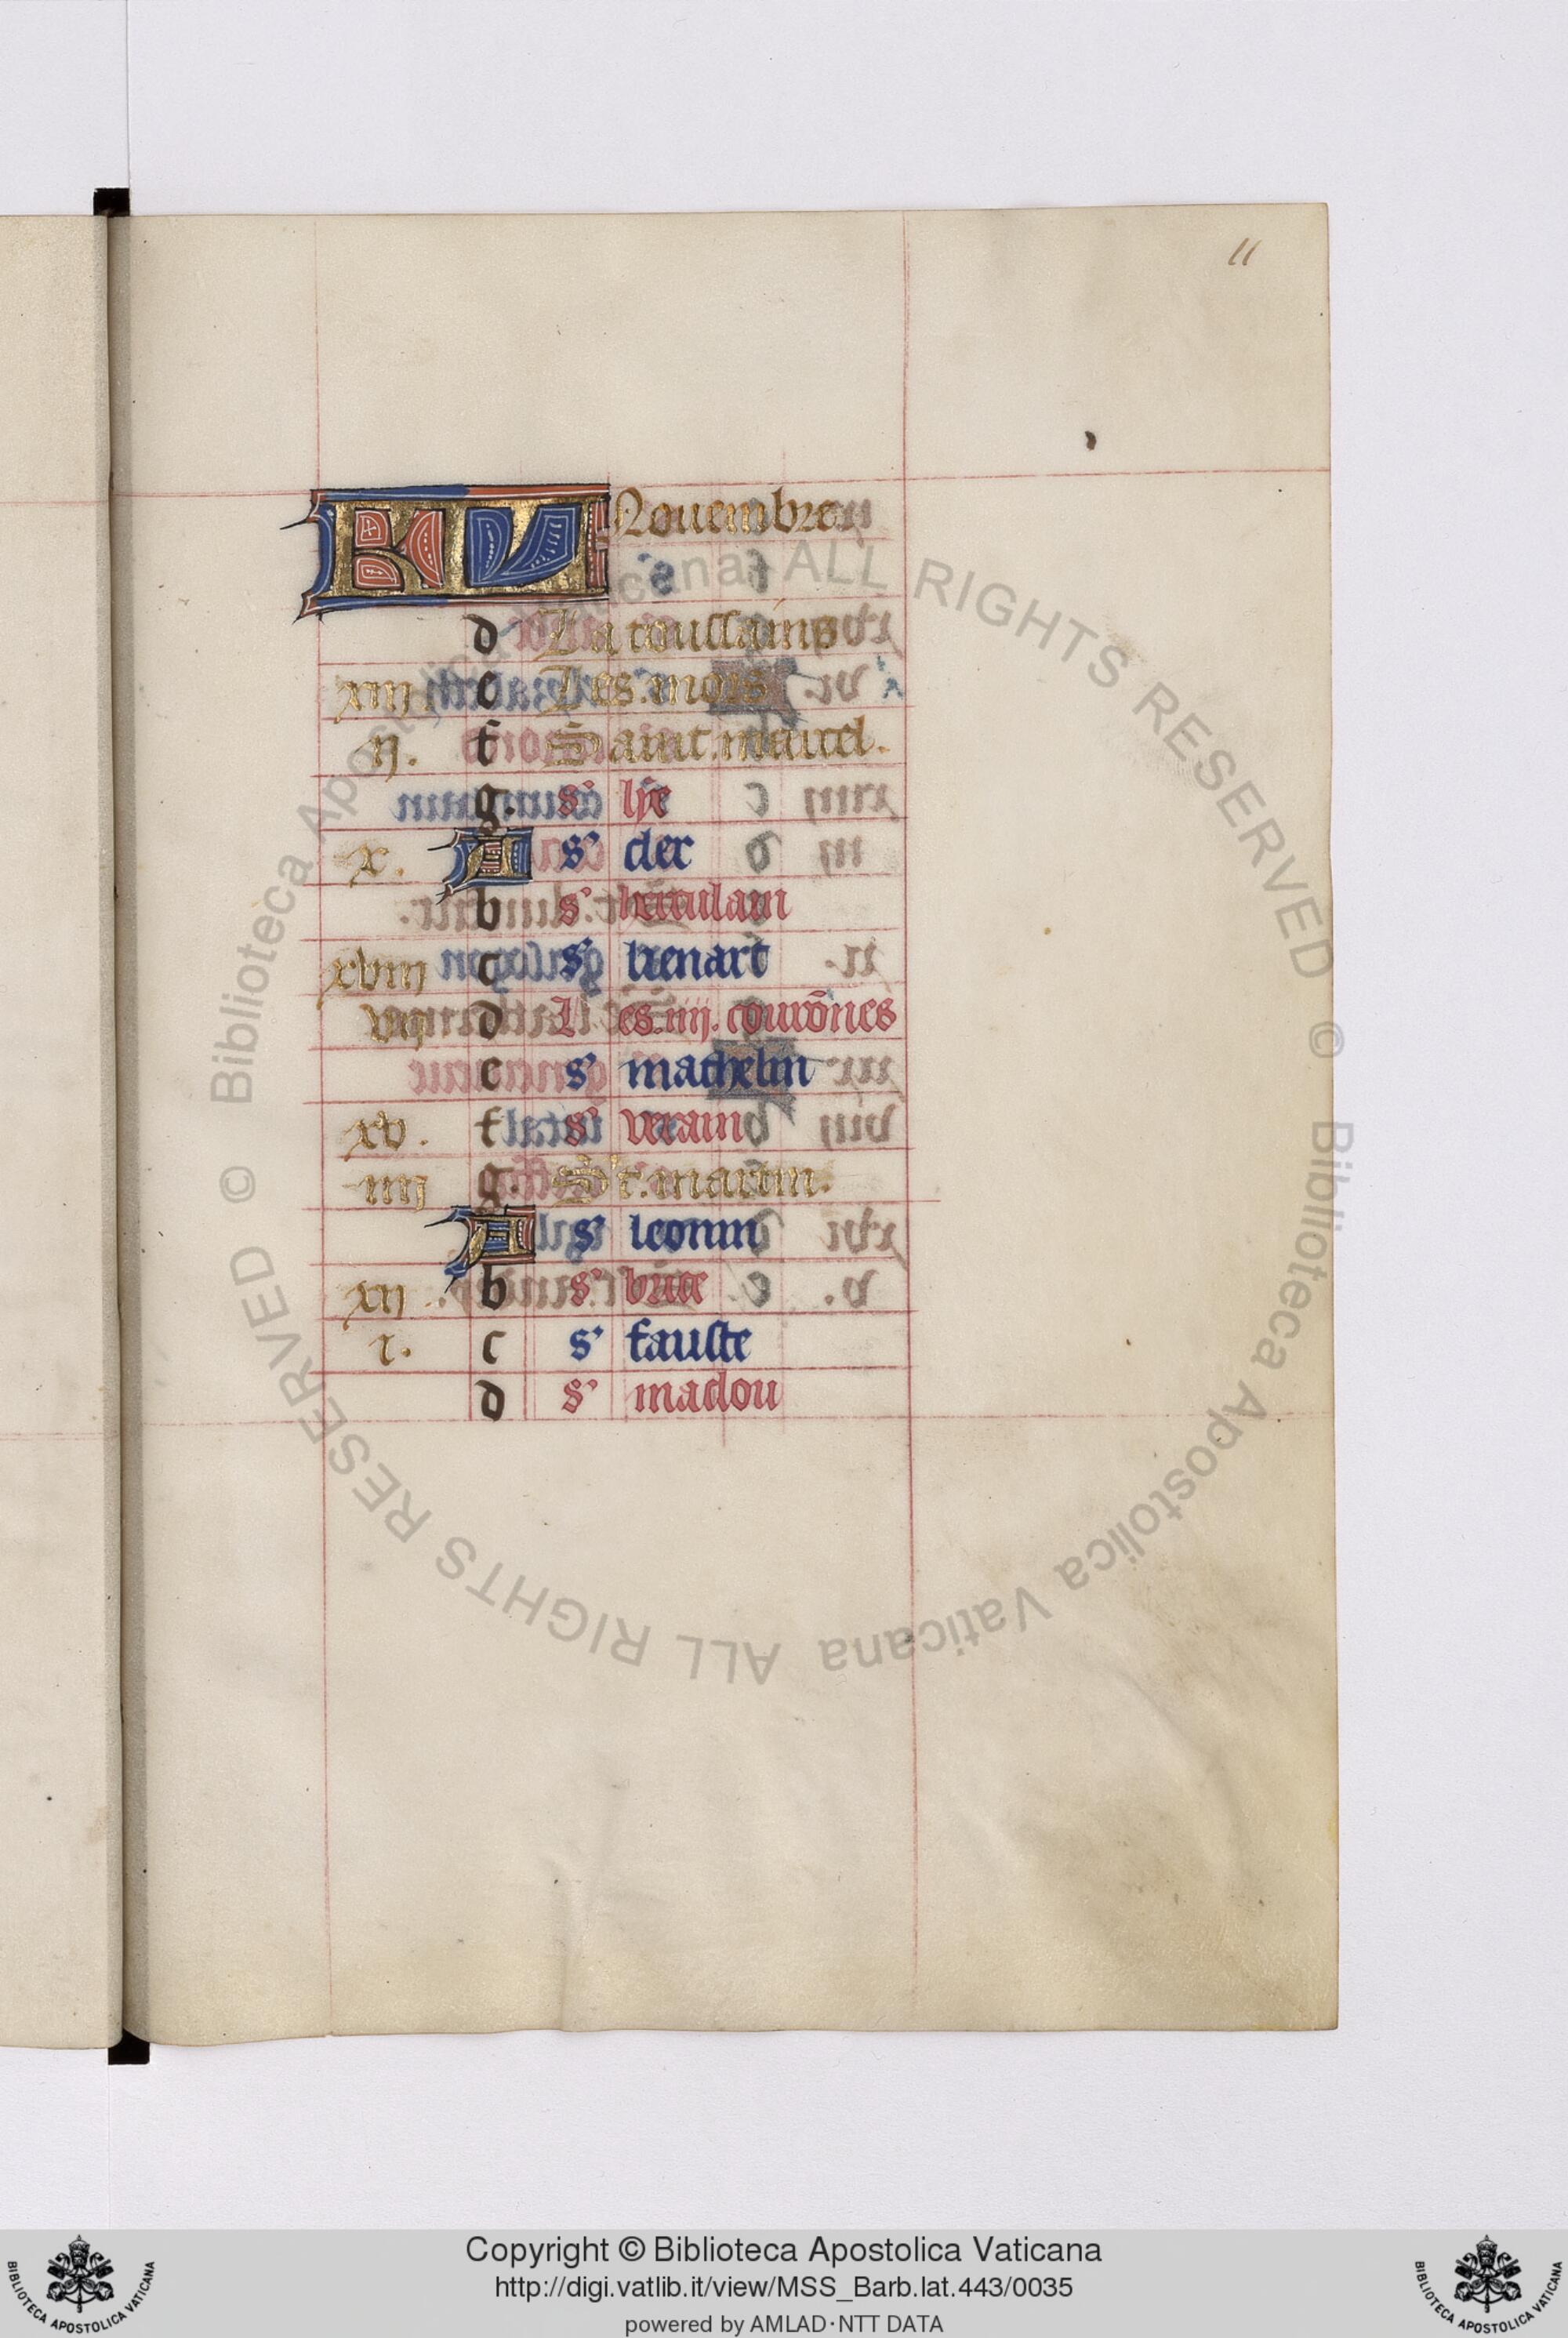 11
KL Nouembre
d La toussains
xiii e Des mors
ii. f Saint marcel.
g. s' lye
x. A s' der
b s'
xviii c s' lienart
vii d Les iiii. courōnes
e s' mathelin
xv. f s' verain
iiii g. St. martin.
A s' leonin
xii b s' brice
i. c s' fauste
d s' maclou
© Biblioteca Apostolica Vaticana ALL RIGHTS RESERVED © Biblioteca Apostolica Vaticana ALL RIGHTS RESERVED
Copyright © Biblioteca Apostolica Vaticana
http://digi.vatlib.it/view/MSS_Barb.lat.443/0035
powered by AMLAD·NTT DATA
BIBLIOTECA APOSTOLICA VATICANA
BIBLIOTECA APOSTOLICA VATICANA